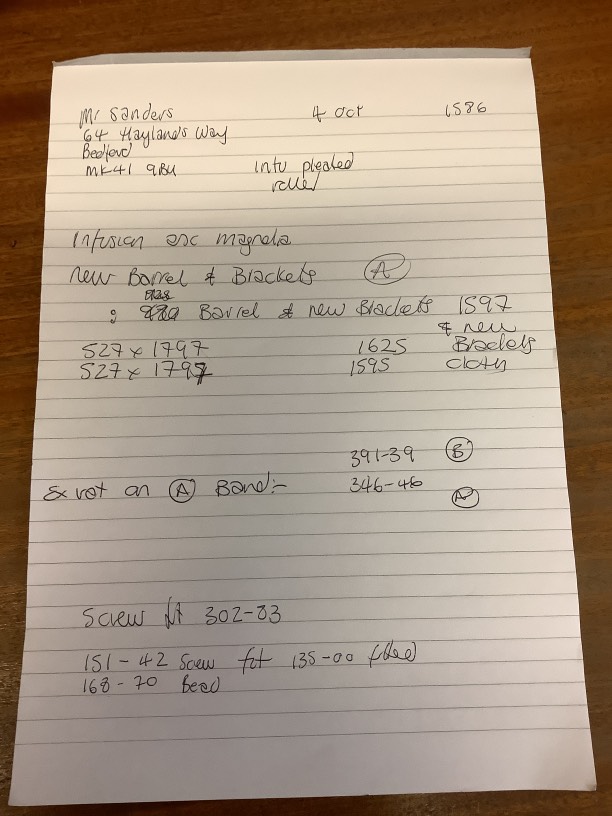 Mr Sanders 4 Oct 1586
64 Haylands Way
Bedford
MK41 9BU Intu pleated
roller
Infusion asc magnolia
New Barrel & Brackets (A)
: Barrel & new Brackets 1597
& new
527 x 1797 1625 Brackets
527 x 1797 1595 cloth
391-39 (B)
& not on (A) Band:- 346-46
(A)
Screw fit 302-83
151-42 Screw fit 135-00
168-70 Bead